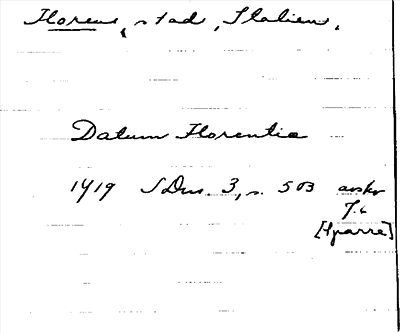 Florens, stad, Italien.
Datum Florentie
1419 SDns. 3, s. 503 avskr
7.6
[Sparre]